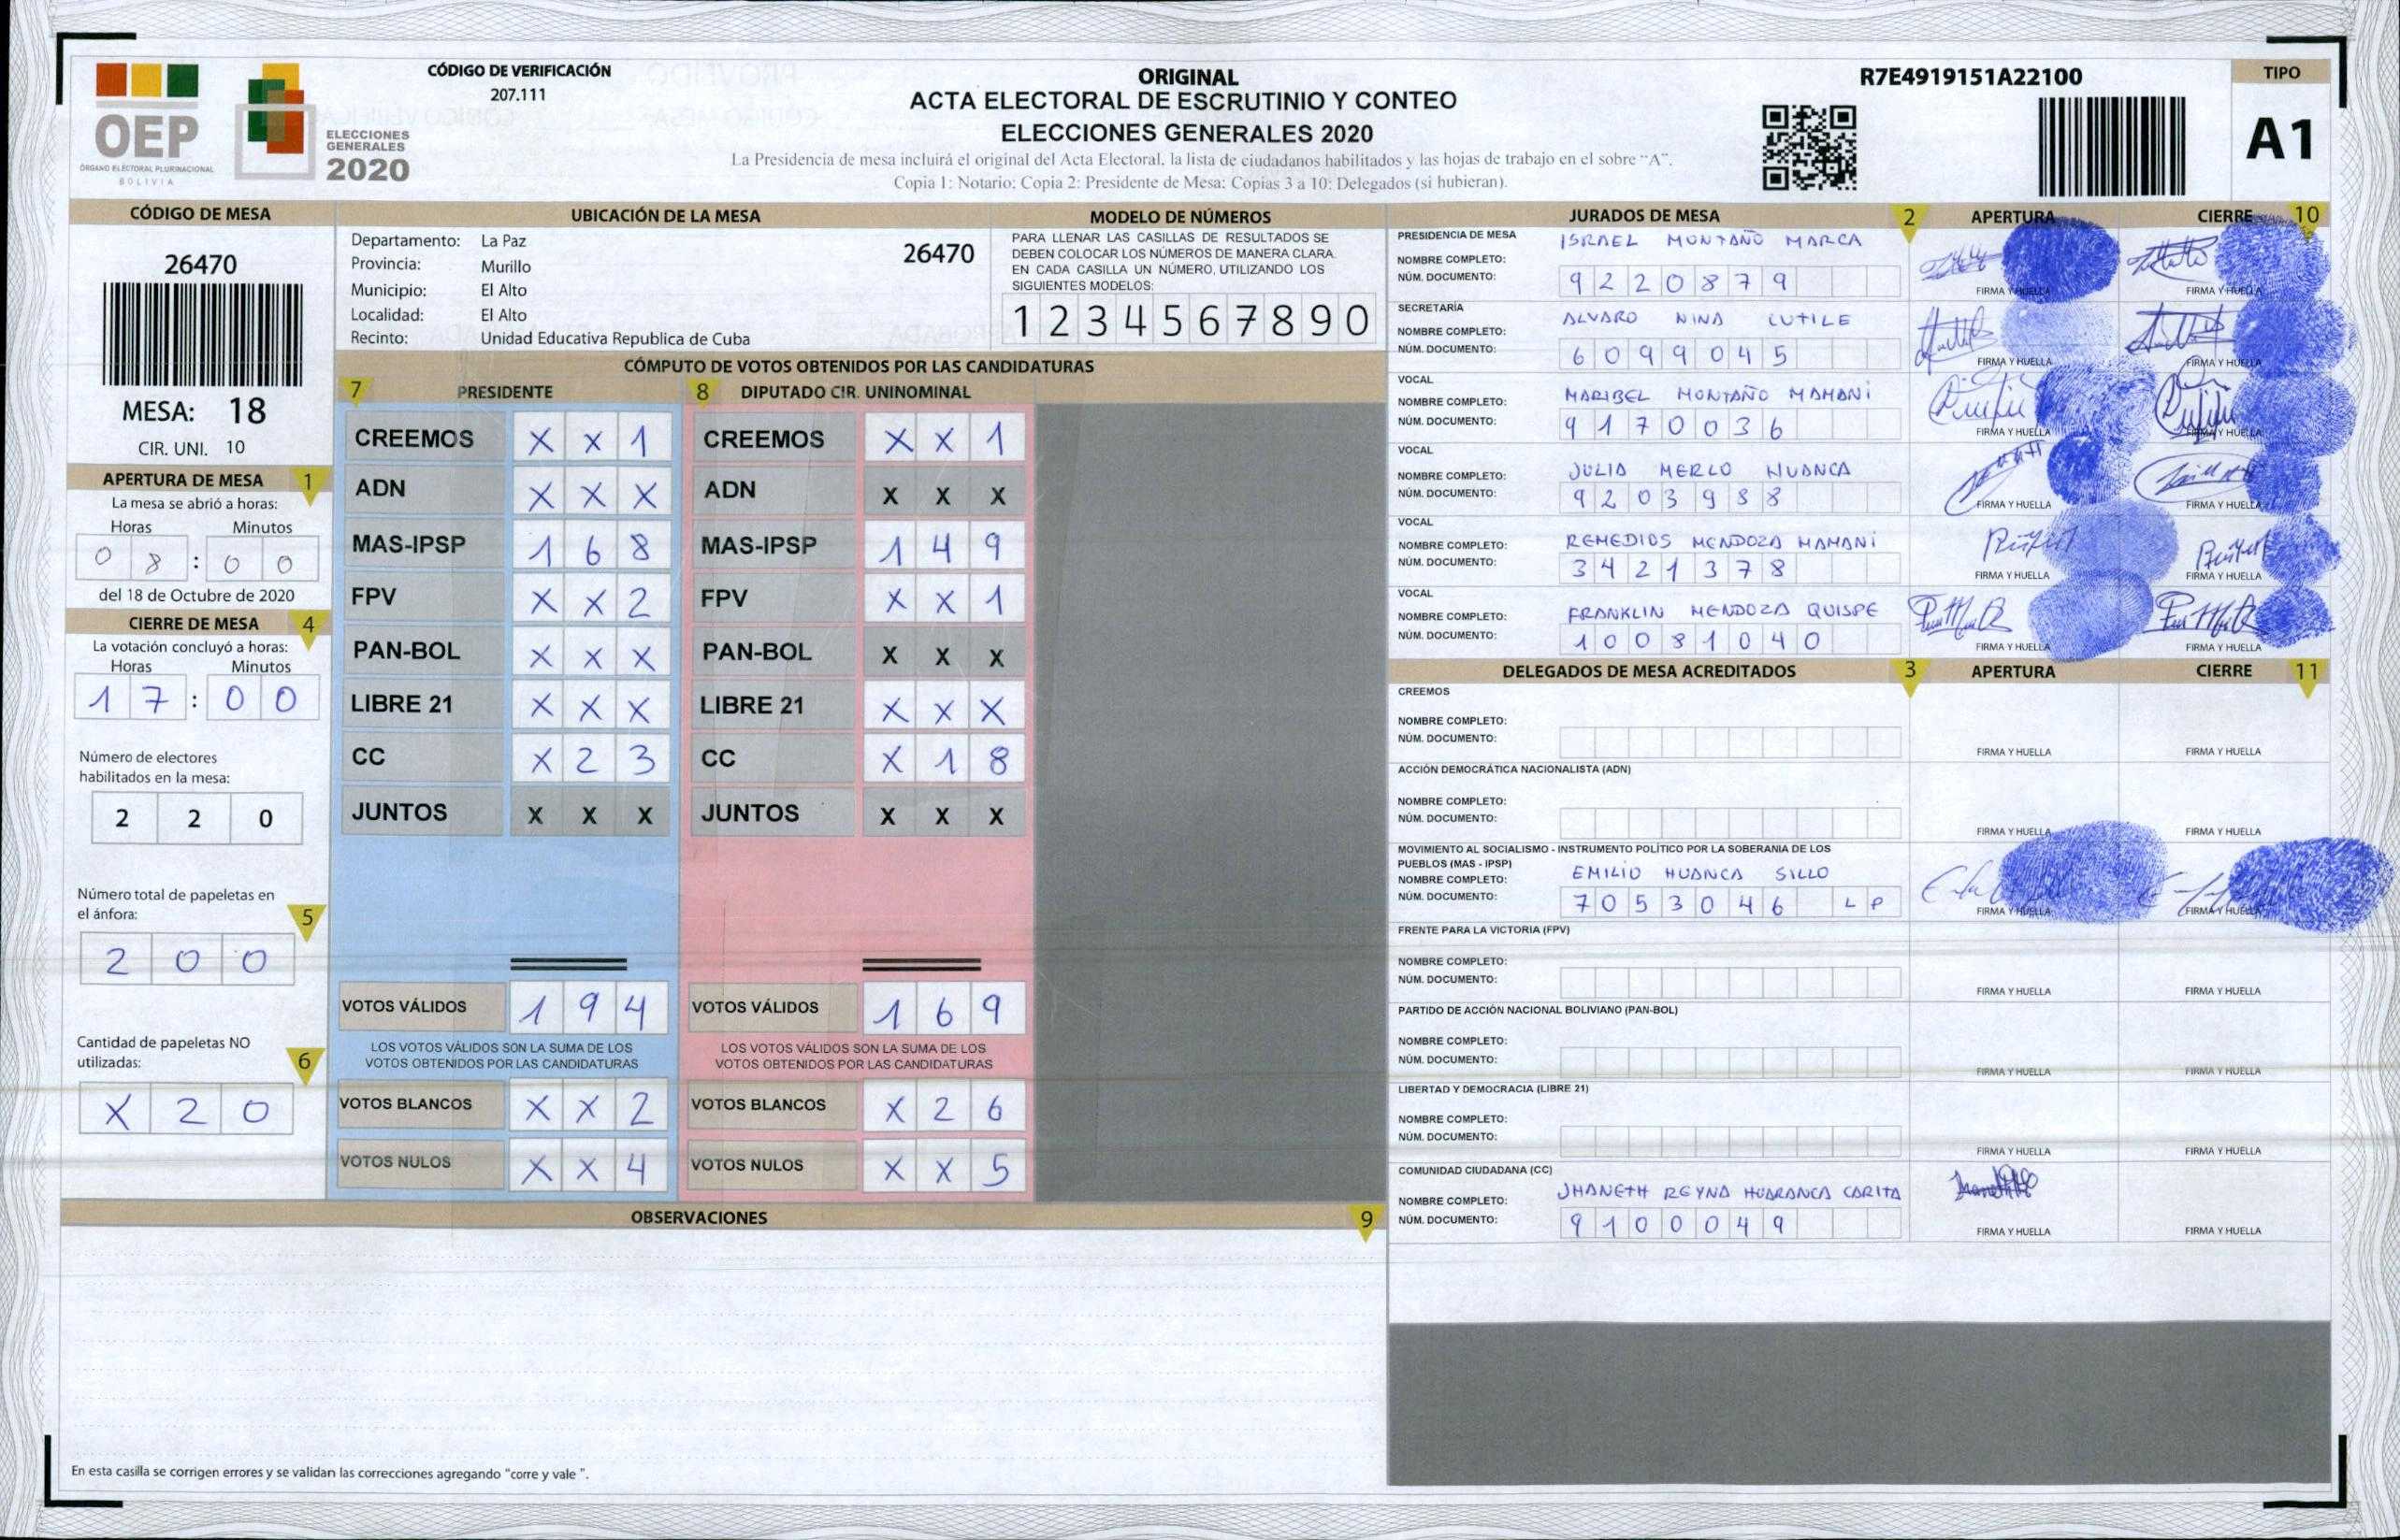 OEP
ÓRGANO ELECTORAL PLURINACIONAL
BOLIVIA
ELECCIONES
GENERALES
2020
CÓDIGO DE VERIFICACIÓN
207.111
ORIGINAL
ACTA ELECTORAL DE ESCRUTINIO Y CONTEO
ELECCIONES GENERALES 2020
La Presidencia de mesa incluirá el original del Acta Electoral, la lista de ciudadanos habilitados y las hojas de trabajo en el sobre "A".
Copia 1: Notario; Copia 2: Presidente de Mesa; Copias 3 a 10: Delegados (si hubieran).
R7E4919151A22100
TIPO
A1
CÓDIGO DE MESA
26470
MESA: 18
CIR. UNI. 10
APERTURA DE MESA 1
La mesa se abrió a horas:
Horas Minutos
0 8 : 0 0
del 18 de Octubre de 2020
CIERRE DE MESA 4
La votación concluyó a horas:
Horas Minutos
1 7 : 0 0
Número de electores
habilitados en la mesa:
2 2 0
Número total de papeletas en
el ánfora: 5
2 0 0
Cantidad de papeletas NO
utilizadas: 6
X 2 0
UBICACIÓN DE LA MESA
Departamento: La Paz
26470
Provincia: Murillo
Municipio: El Alto
Localidad: El Alto
Recinto: Unidad Educativa Republica de Cuba
MODELO DE NÚMEROS
PARA LLENAR LAS CASILLAS DE RESULTADOS SE
DEBEN COLOCAR LOS NÚMEROS DE MANERA CLARA.
EN CADA CASILLA UN NÚMERO, UTILIZANDO LOS
SIGUIENTES MODELOS:
1 2 3 4 5 6 7 8 9 0
CÓMPUTO DE VOTOS OBTENIDOS POR LAS CANDIDATURAS
7 PRESIDENTE 8 DIPUTADO CIR. UNINOMINAL
CREEMOS X X 1 CREEMOS X X 1
ADN X X X ADN X X X
MAS-IPSP 1 6 8 MAS-IPSP 1 4 9
FPV X X 2 FPV X X 1
PAN-BOL X X X PAN-BOL X X X
LIBRE 21 X X X LIBRE 21 X X X
CC X 2 3 CC X 1 8
JUNTOS X X X JUNTOS X X X
VOTOS VÁLIDOS 1 9 4 VOTOS VÁLIDOS 1 6 9
LOS VOTOS VÁLIDOS SON LA SUMA DE LOS LOS VOTOS VÁLIDOS SON LA SUMA DE LOS
VOTOS OBTENIDOS POR LAS CANDIDATURAS VOTOS OBTENIDOS POR LAS CANDIDATURAS
VOTOS BLANCOS X X 2 VOTOS BLANCOS X 2 6
VOTOS NULOS X X 4 VOTOS NULOS X X 5
OBSERVACIONES 9
En esta casilla se corrigen errores y se validan las correcciones agregando "corre y vale ".
JURADOS DE MESA 2 APERTURA CIERRE 10
PRESIDENCIA DE MESA
NOMBRE COMPLETO: ISRAEL MONTAÑO MARCA
NÚM. DOCUMENTO: 9 2 2 0 8 7 9
FIRMA Y HUELLA FIRMA Y HUELLA
SECRETARÍA
NOMBRE COMPLETO: ALVARO NINA CUTILE
NÚM. DOCUMENTO: 6 0 9 9 0 4 5
FIRMA Y HUELLA FIRMA Y HUELLA
VOCAL
NOMBRE COMPLETO: MARIBEL MONTAÑO MAMANI
NÚM. DOCUMENTO: 9 1 7 0 0 3 6
FIRMA Y HUELLA FIRMA Y HUELLA
VOCAL
NOMBRE COMPLETO: JULIA MERLO HUANCA
NÚM. DOCUMENTO: 9 2 0 3 9 8 8
FIRMA Y HUELLA FIRMA Y HUELLA
VOCAL
NOMBRE COMPLETO: REMEDIOS MENDOZA MAMANI
NÚM. DOCUMENTO: 3 4 2 1 3 7 8
FIRMA Y HUELLA FIRMA Y HUELLA
VOCAL
NOMBRE COMPLETO: FRANKLIN MENDOZA QUISPE
NÚM. DOCUMENTO: 1 0 0 8 1 0 4 0
FIRMA Y HUELLA FIRMA Y HUELLA
DELEGADOS DE MESA ACREDITADOS 3 APERTURA CIERRE 11
CREEMOS
NOMBRE COMPLETO:
NÚM. DOCUMENTO:
FIRMA Y HUELLA FIRMA Y HUELLA
ACCIÓN DEMOCRÁTICA NACIONALISTA (ADN)
NOMBRE COMPLETO:
NÚM. DOCUMENTO:
FIRMA Y HUELLA FIRMA Y HUELLA
MOVIMIENTO AL SOCIALISMO - INSTRUMENTO POLÍTICO POR LA SOBERANIA DE LOS
PUEBLOS (MAS - IPSP)
NOMBRE COMPLETO: EMILIO HUANCA SILLO
NÚM. DOCUMENTO: 7 0 5 3 0 4 6 L P
FIRMA Y HUELLA FIRMA Y HUELLA
FRENTE PARA LA VICTORIA (FPV)
NOMBRE COMPLETO:
NÚM. DOCUMENTO:
FIRMA Y HUELLA FIRMA Y HUELLA
PARTIDO DE ACCIÓN NACIONAL BOLIVIANO (PAN-BOL)
NOMBRE COMPLETO:
NÚM. DOCUMENTO:
FIRMA Y HUELLA FIRMA Y HUELLA
LIBERTAD Y DEMOCRACIA (LIBRE 21)
NOMBRE COMPLETO:
NÚM. DOCUMENTO:
FIRMA Y HUELLA FIRMA Y HUELLA
COMUNIDAD CIUDADANA (CC)
NOMBRE COMPLETO: JHANETH REYNA HUARANCA CARITA
NÚM. DOCUMENTO: 9 1 0 0 0 4 9
FIRMA Y HUELLA FIRMA Y HUELLA